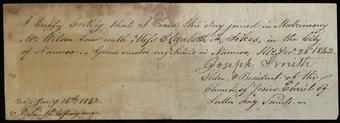 I hereby Certify that I have this day joined in Matrimony
Mr Wilson Law with Miss Elizabeth A. Sikes, in the City
of Nauvoo. Given under my hand in Nauvoo, Ills, Dec 28th 1842.
Joseph Smith
Elder & President of the
Church of Jesus Christ of
Latter day Saints.
Jany 16th 1843.